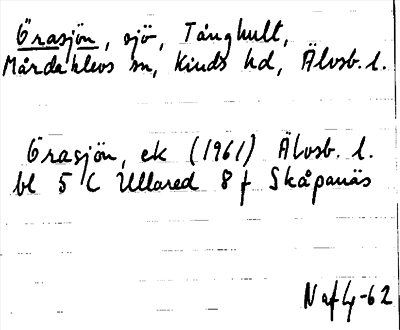 Örasjön, sjö, Tånghult,
Mårdaklevs sn, Kinds hd, Älvsb. l.
Örasjön, ek (1961) Älvsb. l.
bl 5 C Ullared 8 f Skåpanäs
N af G-62